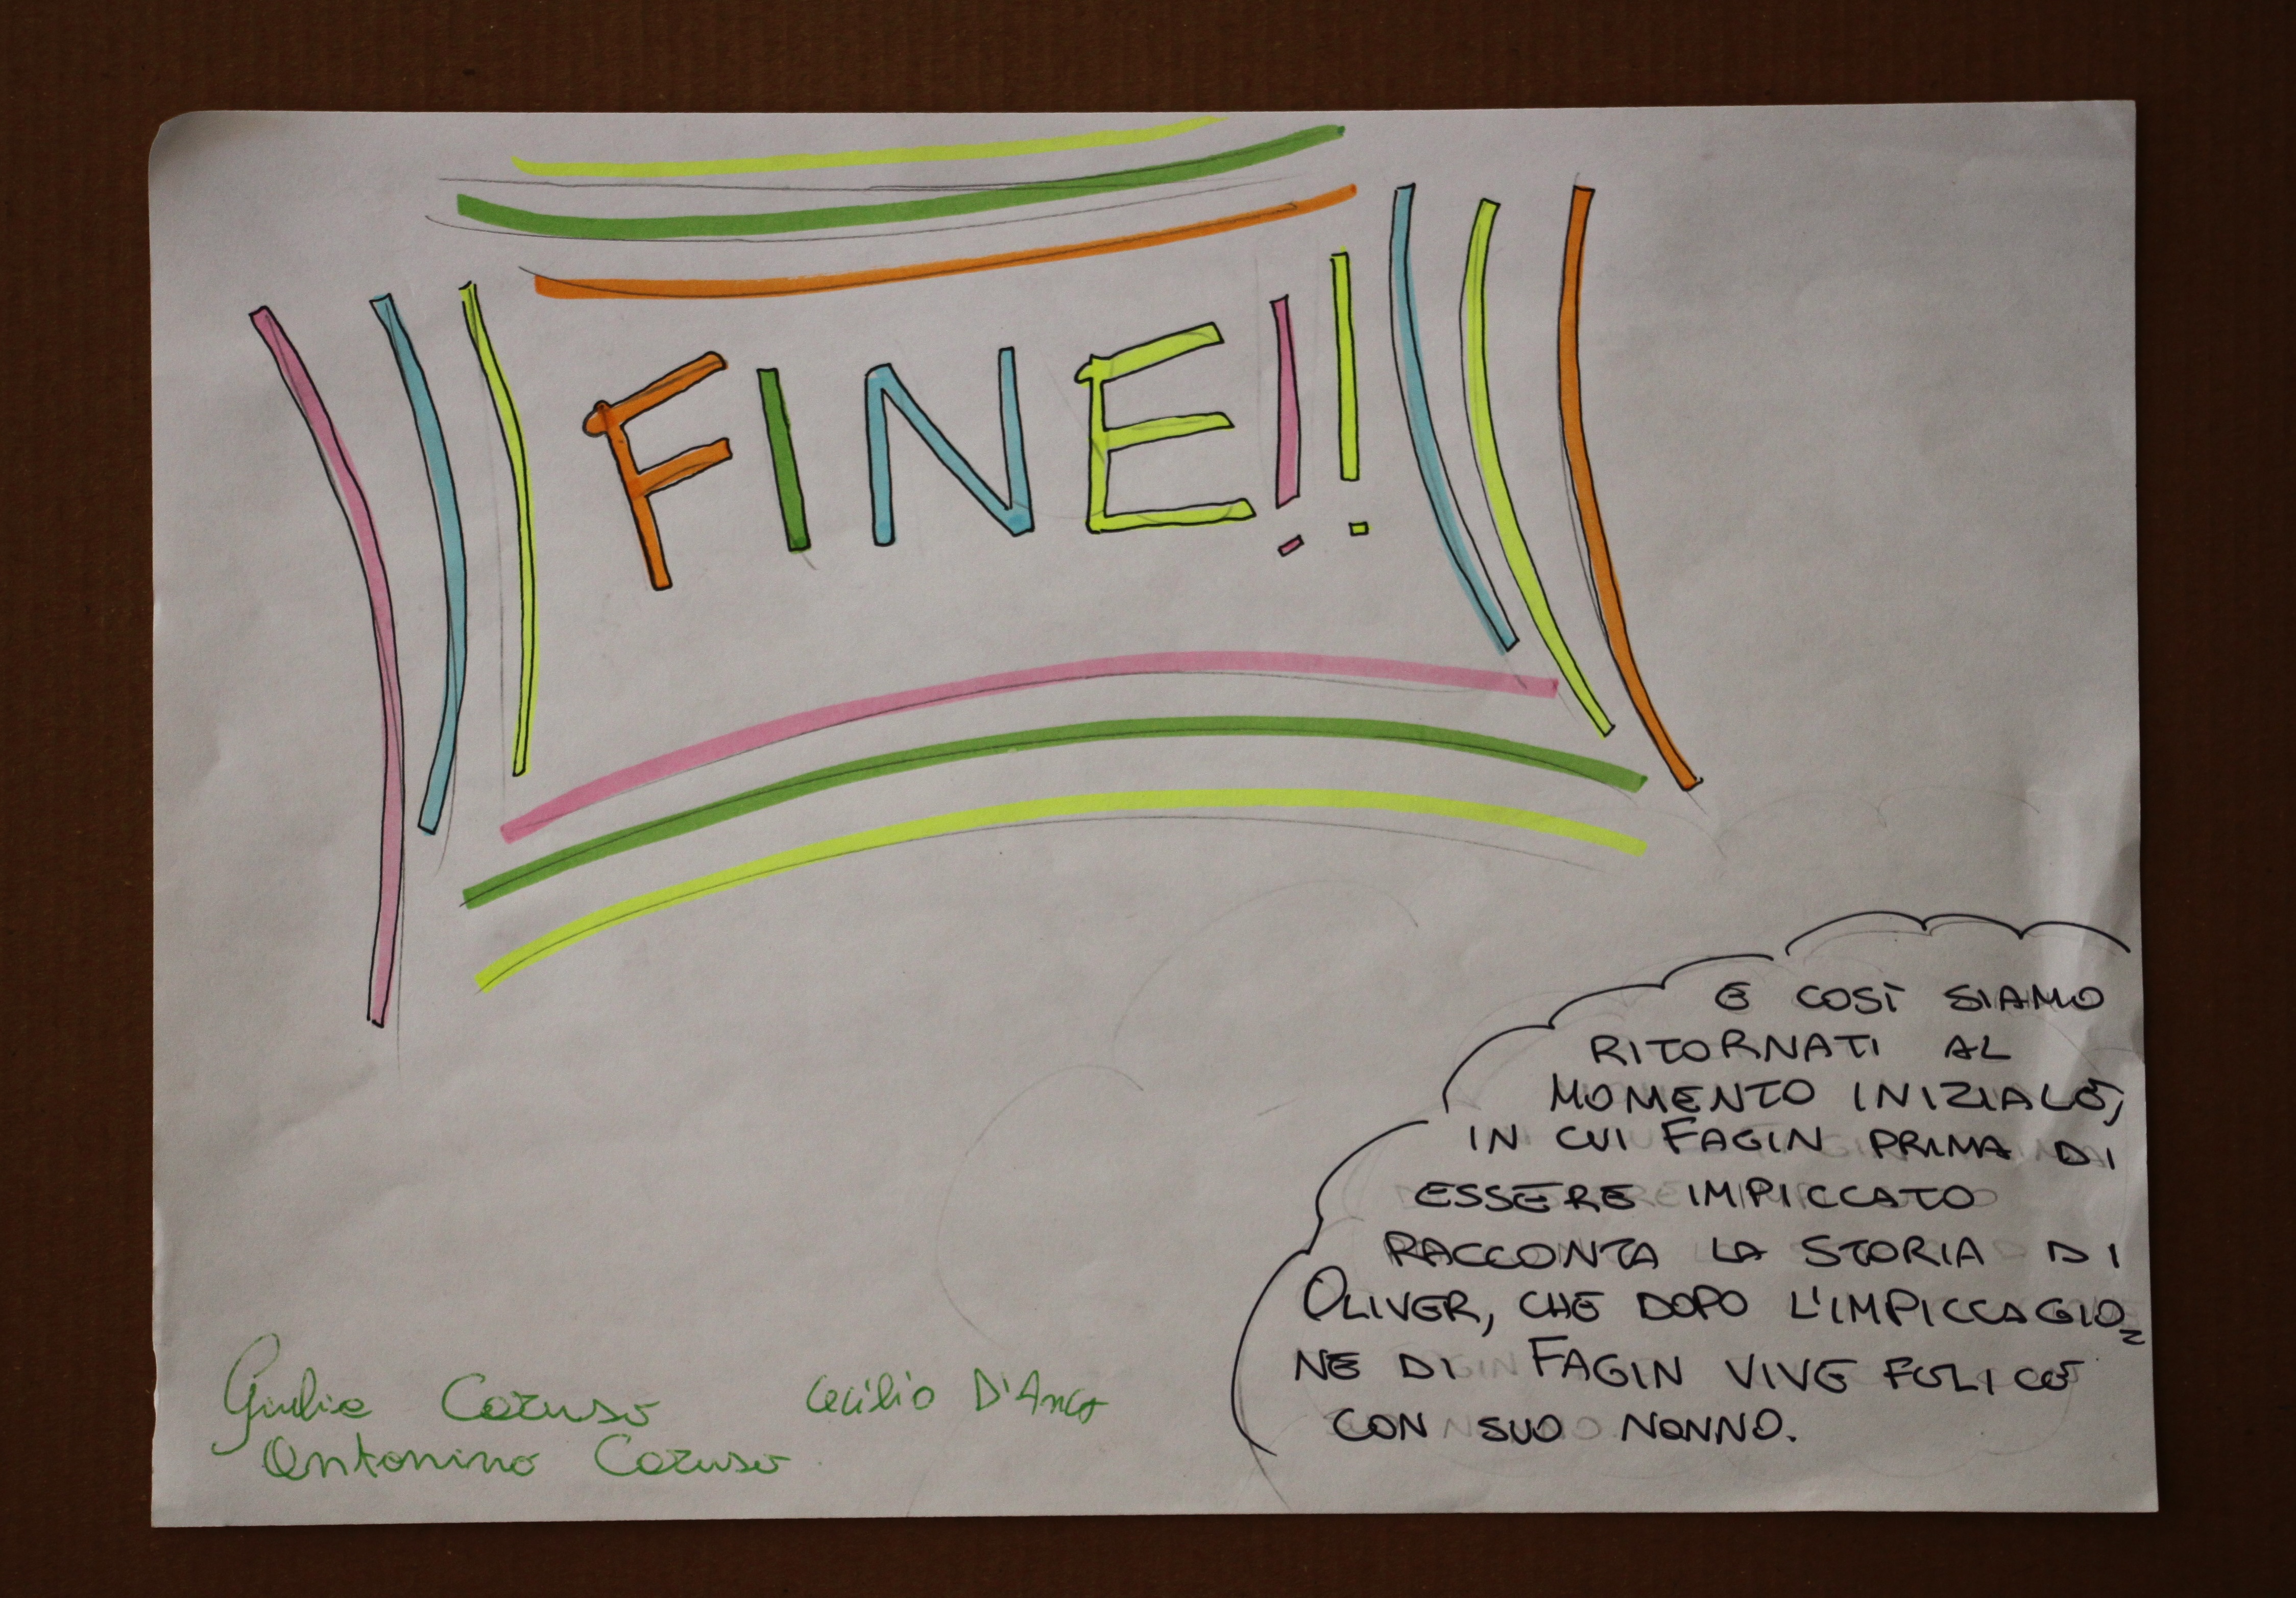 FINE!!
E COSÌ SIAMO
RITORNATI AL
MOMENTO INIZIALE,
IN CUI FAGIN PRIMA DI
ESSERE IMPICCATO
RACCONTA LA STORIA DI
OLIVER, CHE DOPO L'IMPICCAGIO=
NE DI FAGIN VIVE FELICE
CON SUO NONNO.
Giulia Caruso
Cecilio D'Anca
Antonino Caruso